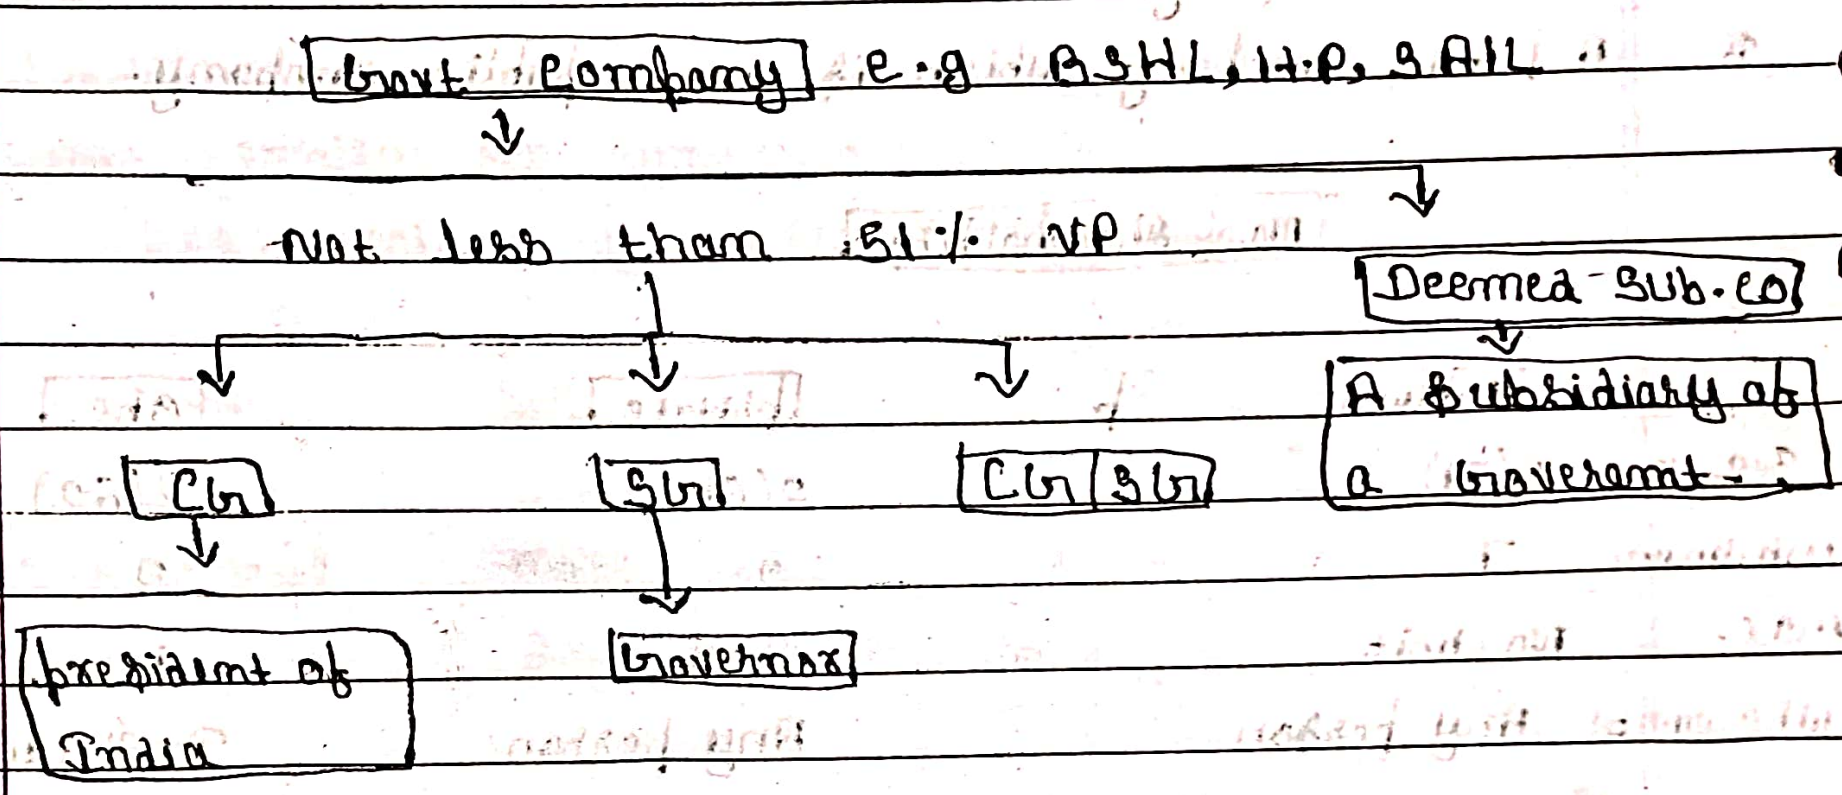 Govt. Company e.g BSHL, H.P, SAIL
Not less than 51% VP
Deemed-Sub.co
A Subsidiary of
a Goveramt-
CG SG CG SG
president of
India
Governor